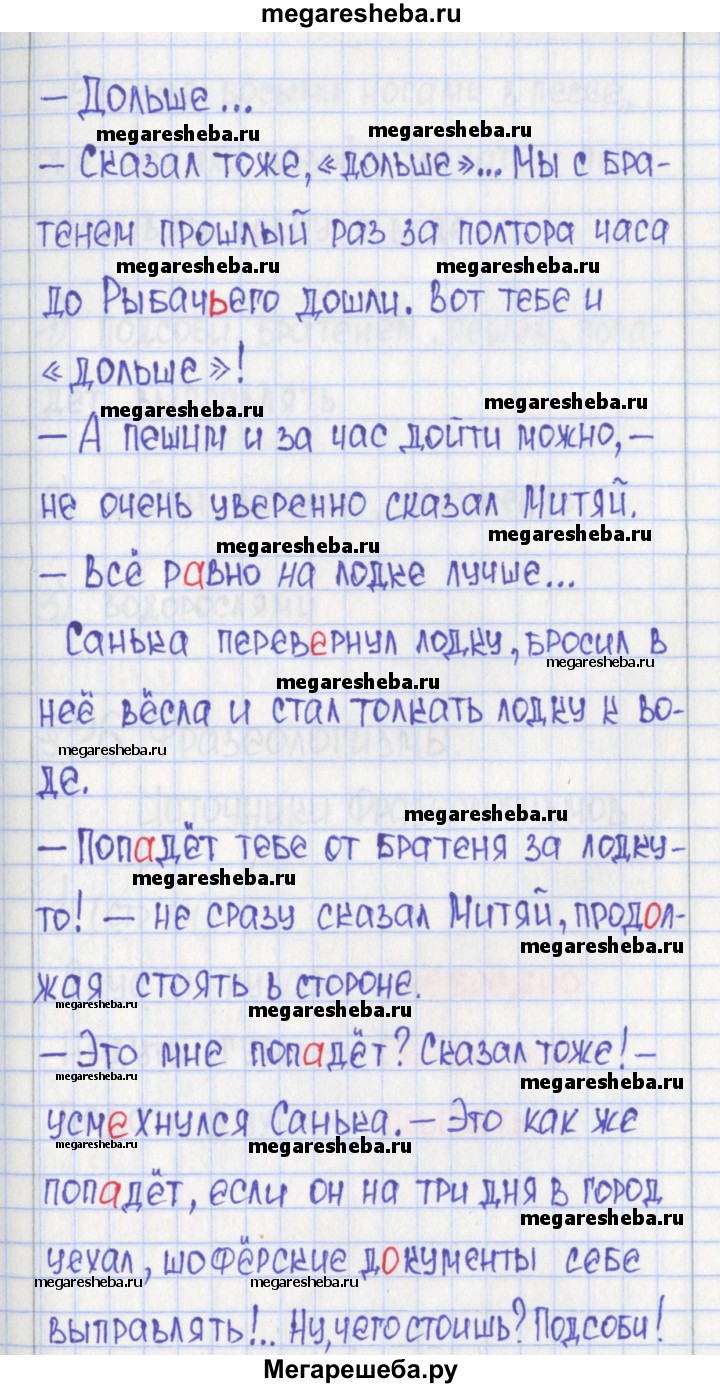 megaresheba.ru
– Дольше...
megaresheba.ru megaresheba.ru
– Сказал тоже, «дольше»... Мы с бра-
тенем прошлый раз за полтора часа
megaresheba.ru megaresheba.ru
до Рыбачьего дошли. Вот тебе и
«дольше»!
megaresheba.ru megaresheba.ru
– А пешим и за час дойти можно, –
не очень уверенно сказал Митяй.
megaresheba.ru megaresheba.ru
– Всё равно на лодке лучше...
Санька перевернул лодку, бросил в
megaresheba.ru
megaresheba.ru
неё вёсла и стал толкать лодку к во-
megaresheba.ru
де.
megaresheba.ru
– Попадёт тебе от братеня за лодку-
megaresheba.ru
то! – не сразу сказал Митяй, продол-
megaresheba.ru
жая стоять в стороне.
megaresheba.ru megaresheba.ru
– Это мне попадёт? Сказал тоже! –
megaresheba.ru megaresheba.ru
усмехнулся Санька. – Это как же
megaresheba.ru megaresheba.ru
попадёт, если он на три дня в город
megaresheba.ru
уехал, шофёрские документы себе
megaresheba.ru megaresheba.ru
выправлять!.. Ну, чего стоишь? Подсоби!
Мегарешеба.ру